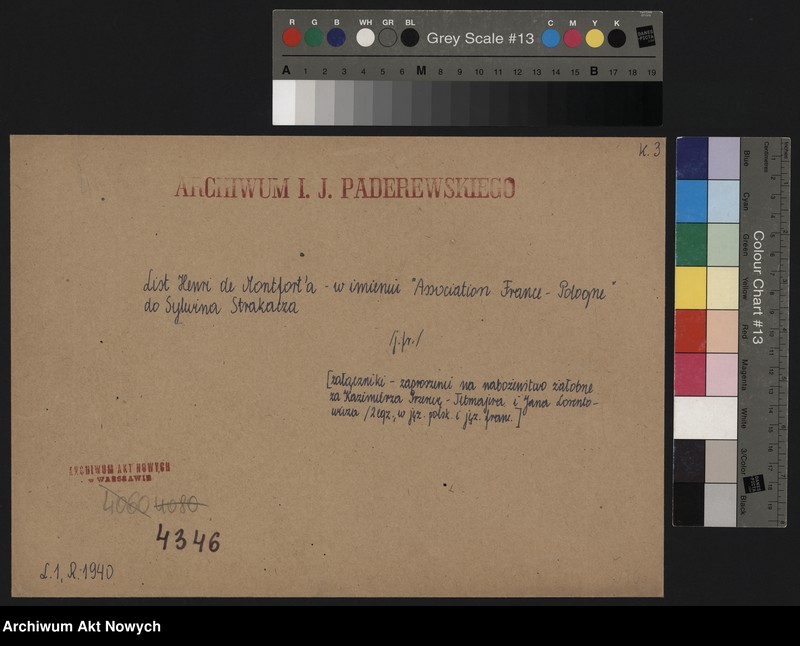 R G B WH GR BL Grey Scale #13 C M Y K
A 1 2 3 4 5 6 M 8 9 10 11 12 13 14 15 B 17 18 19
k. 3
ARCHIWUM I. J. PADEREWSKIEGO
List Henri de Montfort'a - w imieniu "Association France - Pologne"
do Sylwina Strakacza
/j. fr./
[załączniki - zaproszenie na nabożeństwo żałobne
za Kazimierza Przerwę - Tetmajera i Jana Lorento-
wicza /2 egz., w jęz. polsk. i jęz. franc.]
ARCHIWUM AKT NOWYCH
w WARSZAWIE
4060 4080
4346
L. 1, R. 1940
Colour Chart #13
Blue
Cyan
Green
Yellow
Red
Magenta
White
3/Color
Black
Centimetres
Inches
Archiwum Akt Nowych